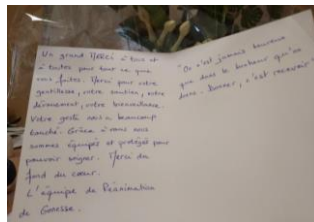 Un grand Merci à tous et
à toutes pour tout ce que
vous faites. Merci pour votre
gentillesse, votre soutien, votre
dévouement, votre bienveillance.
Votre geste nous a beaucoup
touché. Grâce à vous nous
sommes équipés et protégés pour
pouvoir soigner. Merci du
fond du cœur.
L'équipe de Réanimation
de Gonesse.
"On n'est jamais heureux
que dans le bonheur qu'on
donne. Donner, c'est recevoir"